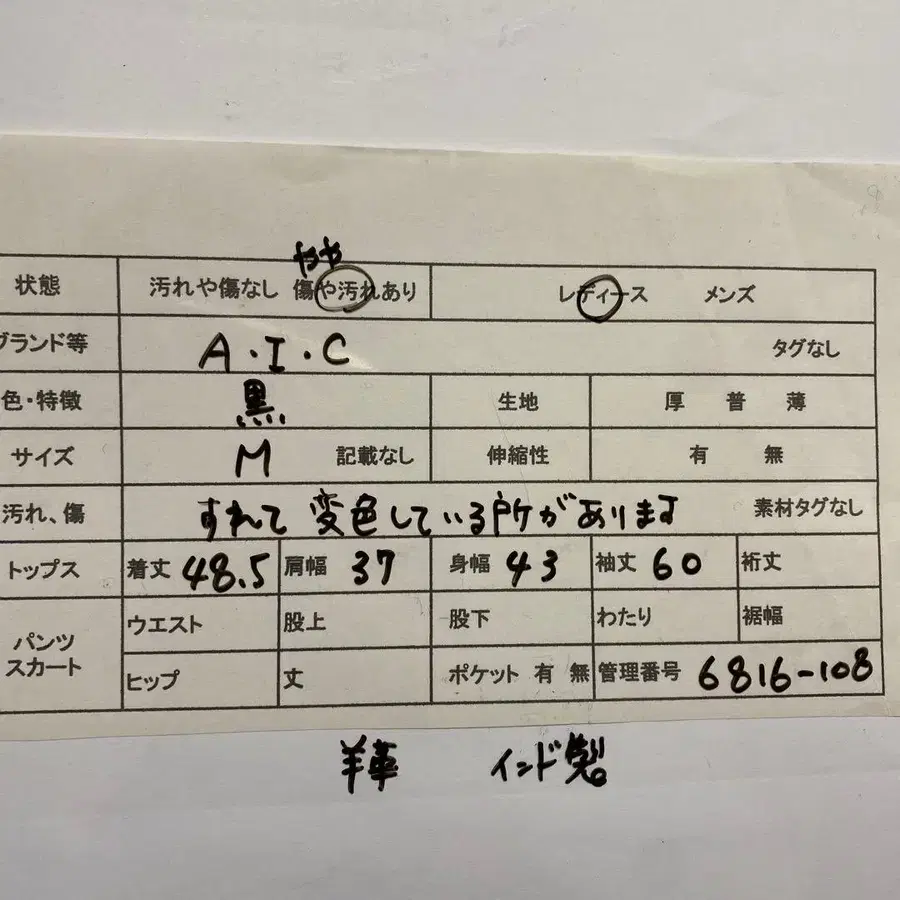 やや
状態 汚れや傷なし 傷や汚れあり レディース メンズ
ブランド等 A・I・C タグなし
色・特徴 黒 生地 厚 普 薄
サイズ M 記載なし 伸縮性 有 無
汚れ、傷 すれて変色している所があります 素材タグなし
トップス 着丈 48.5 肩幅 37 身幅 43 袖丈 60 裄丈
パンツ スカート ウエスト 股上 股下 わたり 裾幅
ヒップ 丈 ポケット 有 無 管理番号 6816-108
羊革 インド製